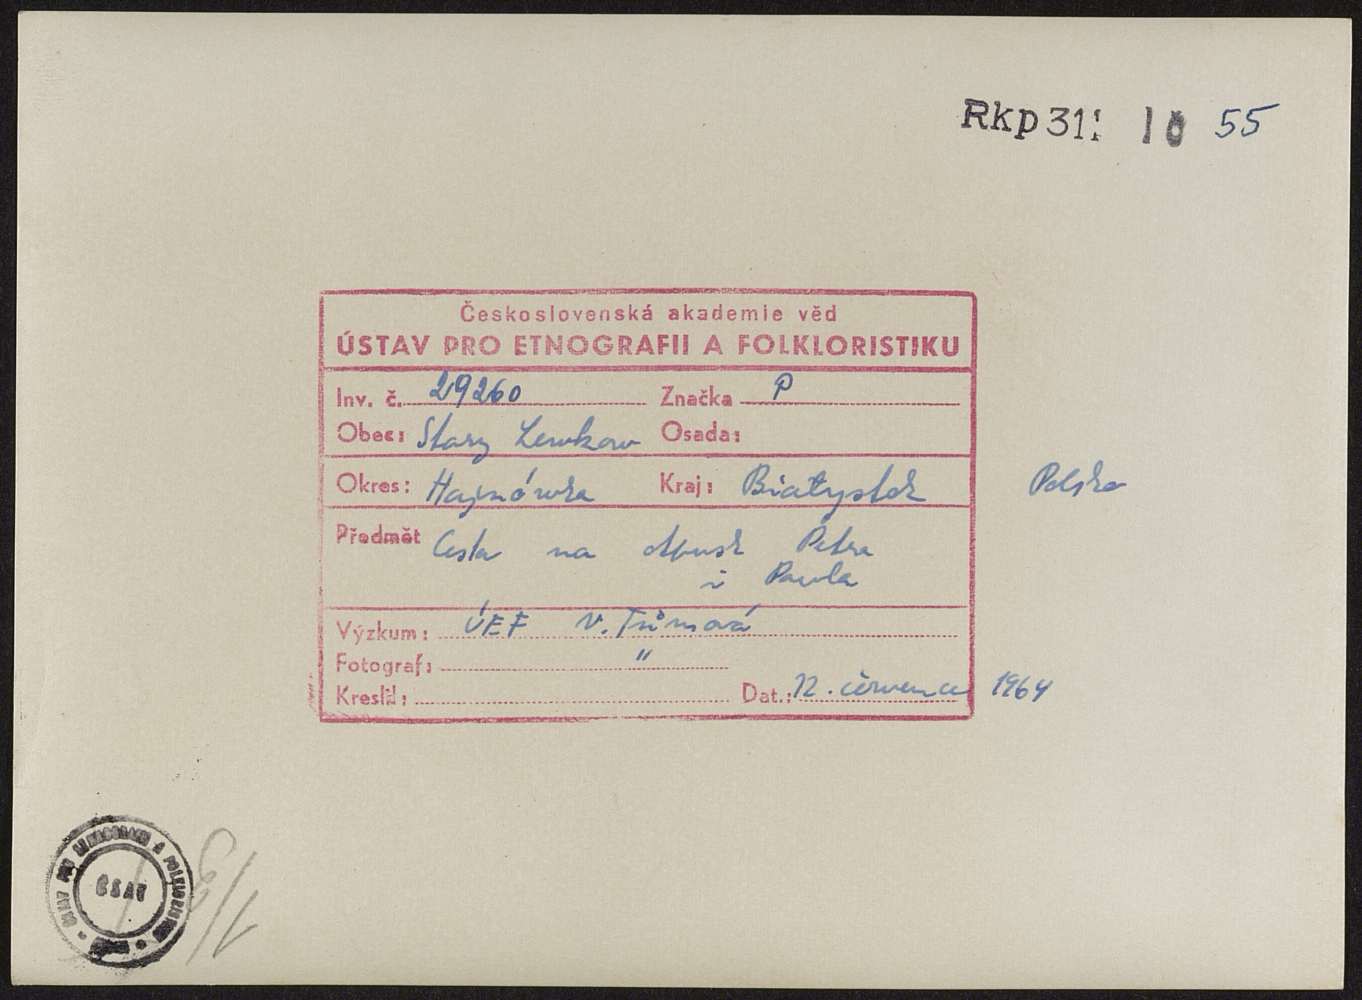 Rkp 311 10 55
Československá akademie věd
ÚSTAV PRO ETNOGRAFII A FOLKLORISTIKU
Inv. č. 29260 Značka P
Obec: Stary Lewkow Osada:
Okres: Hajnówka Kraj: Białystok Polsko
Předmět Cesta na odpust Petra
i Pawla
Výzkum: ÚEF V. Tůmová
Fotograf: "
Kreslil: Dat.: 12. července 1964
ÚSTAV PRO ETNOGRAFII A FOLKLORISTIKU
ČSAV